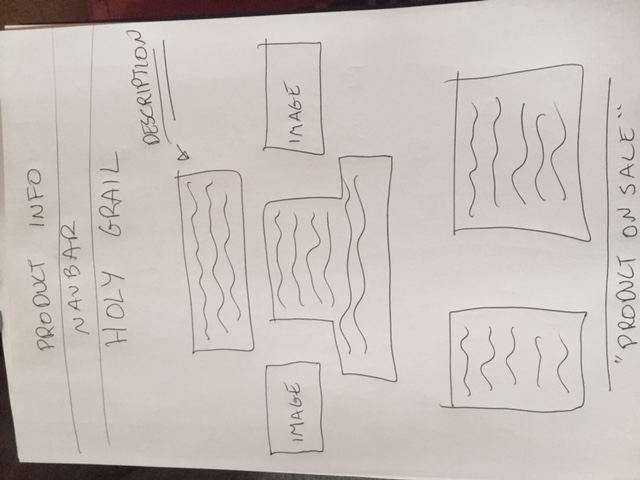 PRODUCT INFO
NAVBAR
HOLY GRAIL
DESCRIPTION
IMAGE
IMAGE
"PRODUCT ON SALE"